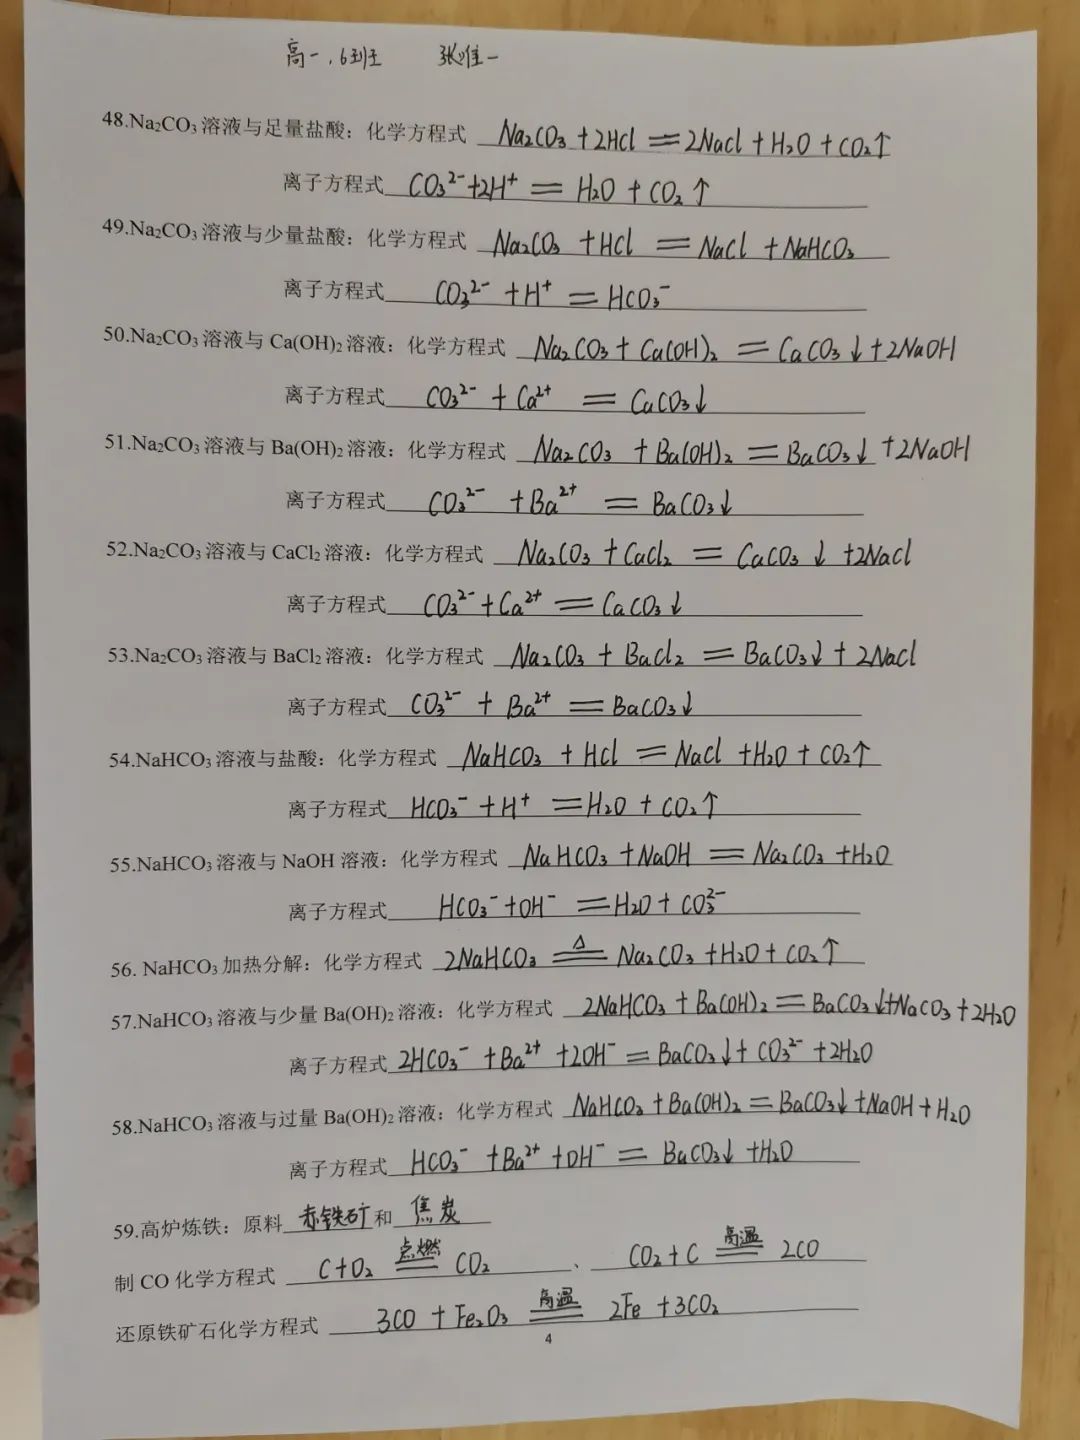 高一.6班 张唯一
48.Na₂CO₃溶液与足量盐酸：化学方程式 Na₂CO₃+2HCl=2NaCl+H₂O+CO₂↑
离子方程式 CO₃²⁻+2H⁺=H₂O+CO₂↑
49.Na₂CO₃溶液与少量盐酸：化学方程式 Na₂CO₃+HCl=NaCl+NaHCO₃
离子方程式 CO₃²⁻+H⁺=HCO₃⁻
50.Na₂CO₃溶液与Ca(OH)₂溶液：化学方程式 Na₂CO₃+Ca(OH)₂=CaCO₃↓+2NaOH
离子方程式 CO₃²⁻+Ca²⁺=CaCO₃↓
51.Na₂CO₃溶液与Ba(OH)₂溶液：化学方程式 Na₂CO₃+Ba(OH)₂=BaCO₃↓+2NaOH
离子方程式 CO₃²⁻+Ba²⁺=BaCO₃↓
52.Na₂CO₃溶液与CaCl₂溶液：化学方程式 Na₂CO₃+CaCl₂=CaCO₃↓+2NaCl
离子方程式 CO₃²⁻+Ca²⁺=CaCO₃↓
53.Na₂CO₃溶液与BaCl₂溶液：化学方程式 Na₂CO₃+BaCl₂=BaCO₃↓+2NaCl
离子方程式 CO₃²⁻+Ba²⁺=BaCO₃↓
54.NaHCO₃溶液与盐酸：化学方程式 NaHCO₃+HCl=NaCl+H₂O+CO₂↑
离子方程式 HCO₃⁻+H⁺=H₂O+CO₂↑
55.NaHCO₃溶液与NaOH溶液：化学方程式 NaHCO₃+NaOH=Na₂CO₃+H₂O
离子方程式 HCO₃⁻+OH⁻=H₂O+CO₃²⁻
56. NaHCO₃加热分解：化学方程式 2NaHCO₃ ≜ Na₂CO₃+H₂O+CO₂↑
57.NaHCO₃溶液与少量Ba(OH)₂溶液：化学方程式 2NaHCO₃+Ba(OH)₂=BaCO₃↓+NaCO₃+2H₂O
离子方程式 2HCO₃⁻+Ba²⁺+2OH⁻=BaCO₃↓+CO₃²⁻+2H₂O
58.NaHCO₃溶液与过量Ba(OH)₂溶液：化学方程式 NaHCO₃+Ba(OH)₂=BaCO₃↓+NaOH+H₂O
离子方程式 HCO₃⁻+Ba²⁺+OH⁻=BaCO₃↓+H₂O
59.高炉炼铁：原料 赤铁矿 和 焦炭
制CO化学方程式 C+O₂ 点燃= CO₂ 、 CO₂+C 高温= 2CO
还原铁矿石化学方程式 3CO+Fe₂O₃ 高温= 2Fe+3CO₂
4